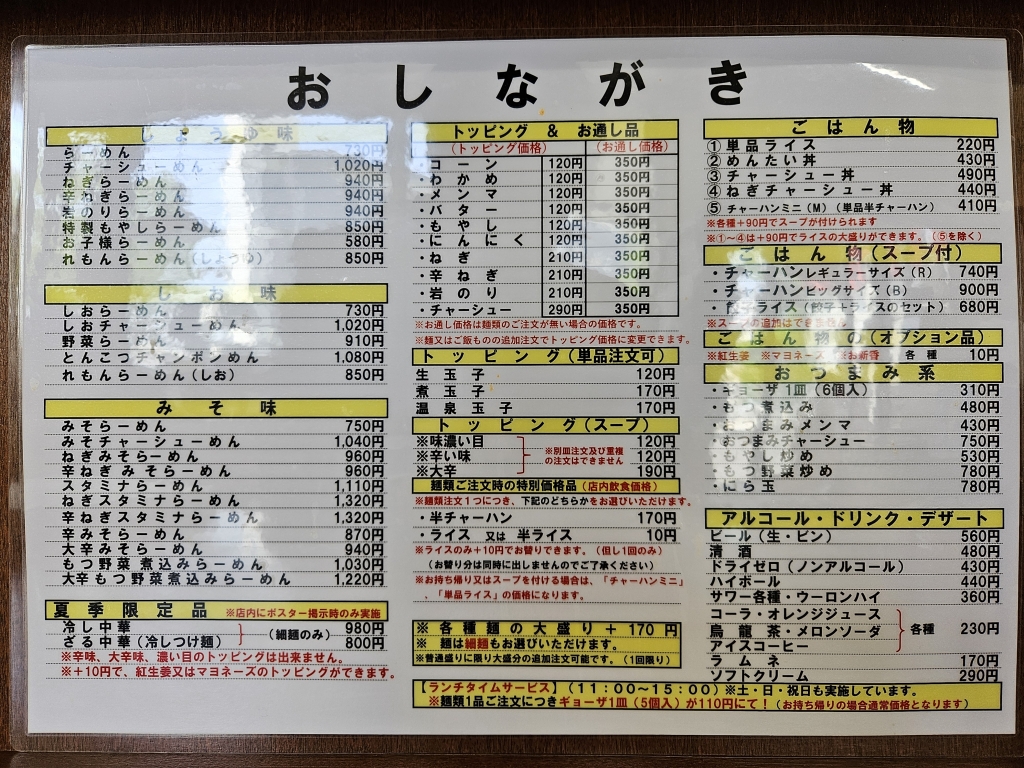 おしながき
しょうゆ味
らーめん 730円
チャーシューめん 1,020円
ねぎらーめん 940円
辛ねぎらーめん 940円
岩のりらーめん 940円
特製もやしらーめん 850円
お子様らーめん 580円
れもんらーめん(しょうゆ) 850円
しお味
しおらーめん 730円
しおチャーシューめん 1,020円
野菜らーめん 910円
とんこつチャンポンめん 1,080円
れもんらーめん(しお) 850円
みそ味
みそらーめん 750円
みそチャーシューめん 1,040円
ねぎみそらーめん 960円
辛ねぎみそらーめん 960円
スタミナらーめん 1,110円
ねぎスタミナらーめん 1,320円
辛ねぎスタミナらーめん 1,320円
辛みそらーめん 870円
大辛みそらーめん 940円
もつ野菜煮込みらーめん 1,030円
大辛もつ野菜煮込みらーめん 1,220円
夏季限定品 ※店内にポスター掲示時のみ実施
冷し中華 980円
ざる中華(冷しつけ麺) (細麺のみ) 800円
※辛味、大辛味、濃い目のトッピングは出来ません。
※+10円で、紅生姜又はマヨネーズのトッピングができます。
トッピング & お通し品
(トッピング価格) (お通し価格)
・コーン 120円 350円
・わかめ 120円 350円
・メンマ 120円 350円
・バター 120円 350円
・もやし 120円 350円
・にんにく 120円 350円
・ねぎ 210円 350円
・辛ねぎ 210円 350円
・岩のり 210円 350円
・チャーシュー 290円 350円
※お通し価格は麺類のご注文が無い場合の価格です。
※麺又はご飯ものの追加注文でトッピング価格に変更できます。
トッピング(単品注文可)
生玉子 120円
煮玉子 170円
温泉玉子 170円
トッピング(スープ)
※味濃い目 120円
※辛い味 120円
※大辛 190円
※別皿注文及び重複
の注文はできません
麺類ご注文時の特別価格品(店内飲食価格)
※麺類注文1つにつき、下記のどちらかをお選びいただけます。
・半チャーハン 170円
・ライス 又は 半ライス 10円
※ライスのみ+10円でお替りできます。(但し1回のみ)
(お替り分は同時に出しませんのでご了承ください)
※お持ち帰り又はスープを付ける場合は、「チャーハンミニ」
、「単品ライス」の価格になります。
※各種麺の大盛り+170円
※ 麺は細麺もお選びいただけます。
※普通盛りに限り大盛分の追加注文可能です。(1回限り)
【ランチタイムサービス】(11:00~15:00)※土・日・祝日も実施しています。
※麺類1品ご注文につきギョーザ1皿(5個入)が110円にて!(お持ち帰りの場合通常価格となります)
ごはん物
①単品ライス 220円
②めんたい丼 430円
③チャーシュー丼 490円
④ねぎチャーシュー丼 440円
⑤チャーハンミニ(M)(単品半チャーハン) 410円
※各種+90円でスープが付けられます
※①~④は+90円でライスの大盛りができます。(⑤を除く)
ごはん物(スープ付)
・チャーハンレギュラーサイズ(R) 740円
・チャーハンビッグサイズ(B) 900円
・餃子ライス(餃子+ライスのセット) 680円
※スープの追加はできません
ごはん物の(オプション品)
※紅生姜 ※マヨネーズ ※お新香 各種 10円
おつまみ系
・ギョーザ1皿(6個入) 310円
・もつ煮込み 480円
・おつまみメンマ 430円
・おつまみチャーシュー 750円
・もやし炒め 530円
・もつ野菜炒め 780円
・にら玉 780円
アルコール・ドリンク・デザート
ビール(生・ビン) 560円
清酒 480円
ドライゼロ(ノンアルコール) 430円
ハイボール 440円
サワー各種・ウーロンハイ 360円
コーラ・オレンジジュース
烏龍茶・メロンソーダ 各種 230円
アイスコーヒー
ラムネ 170円
ソフトクリーム 290円